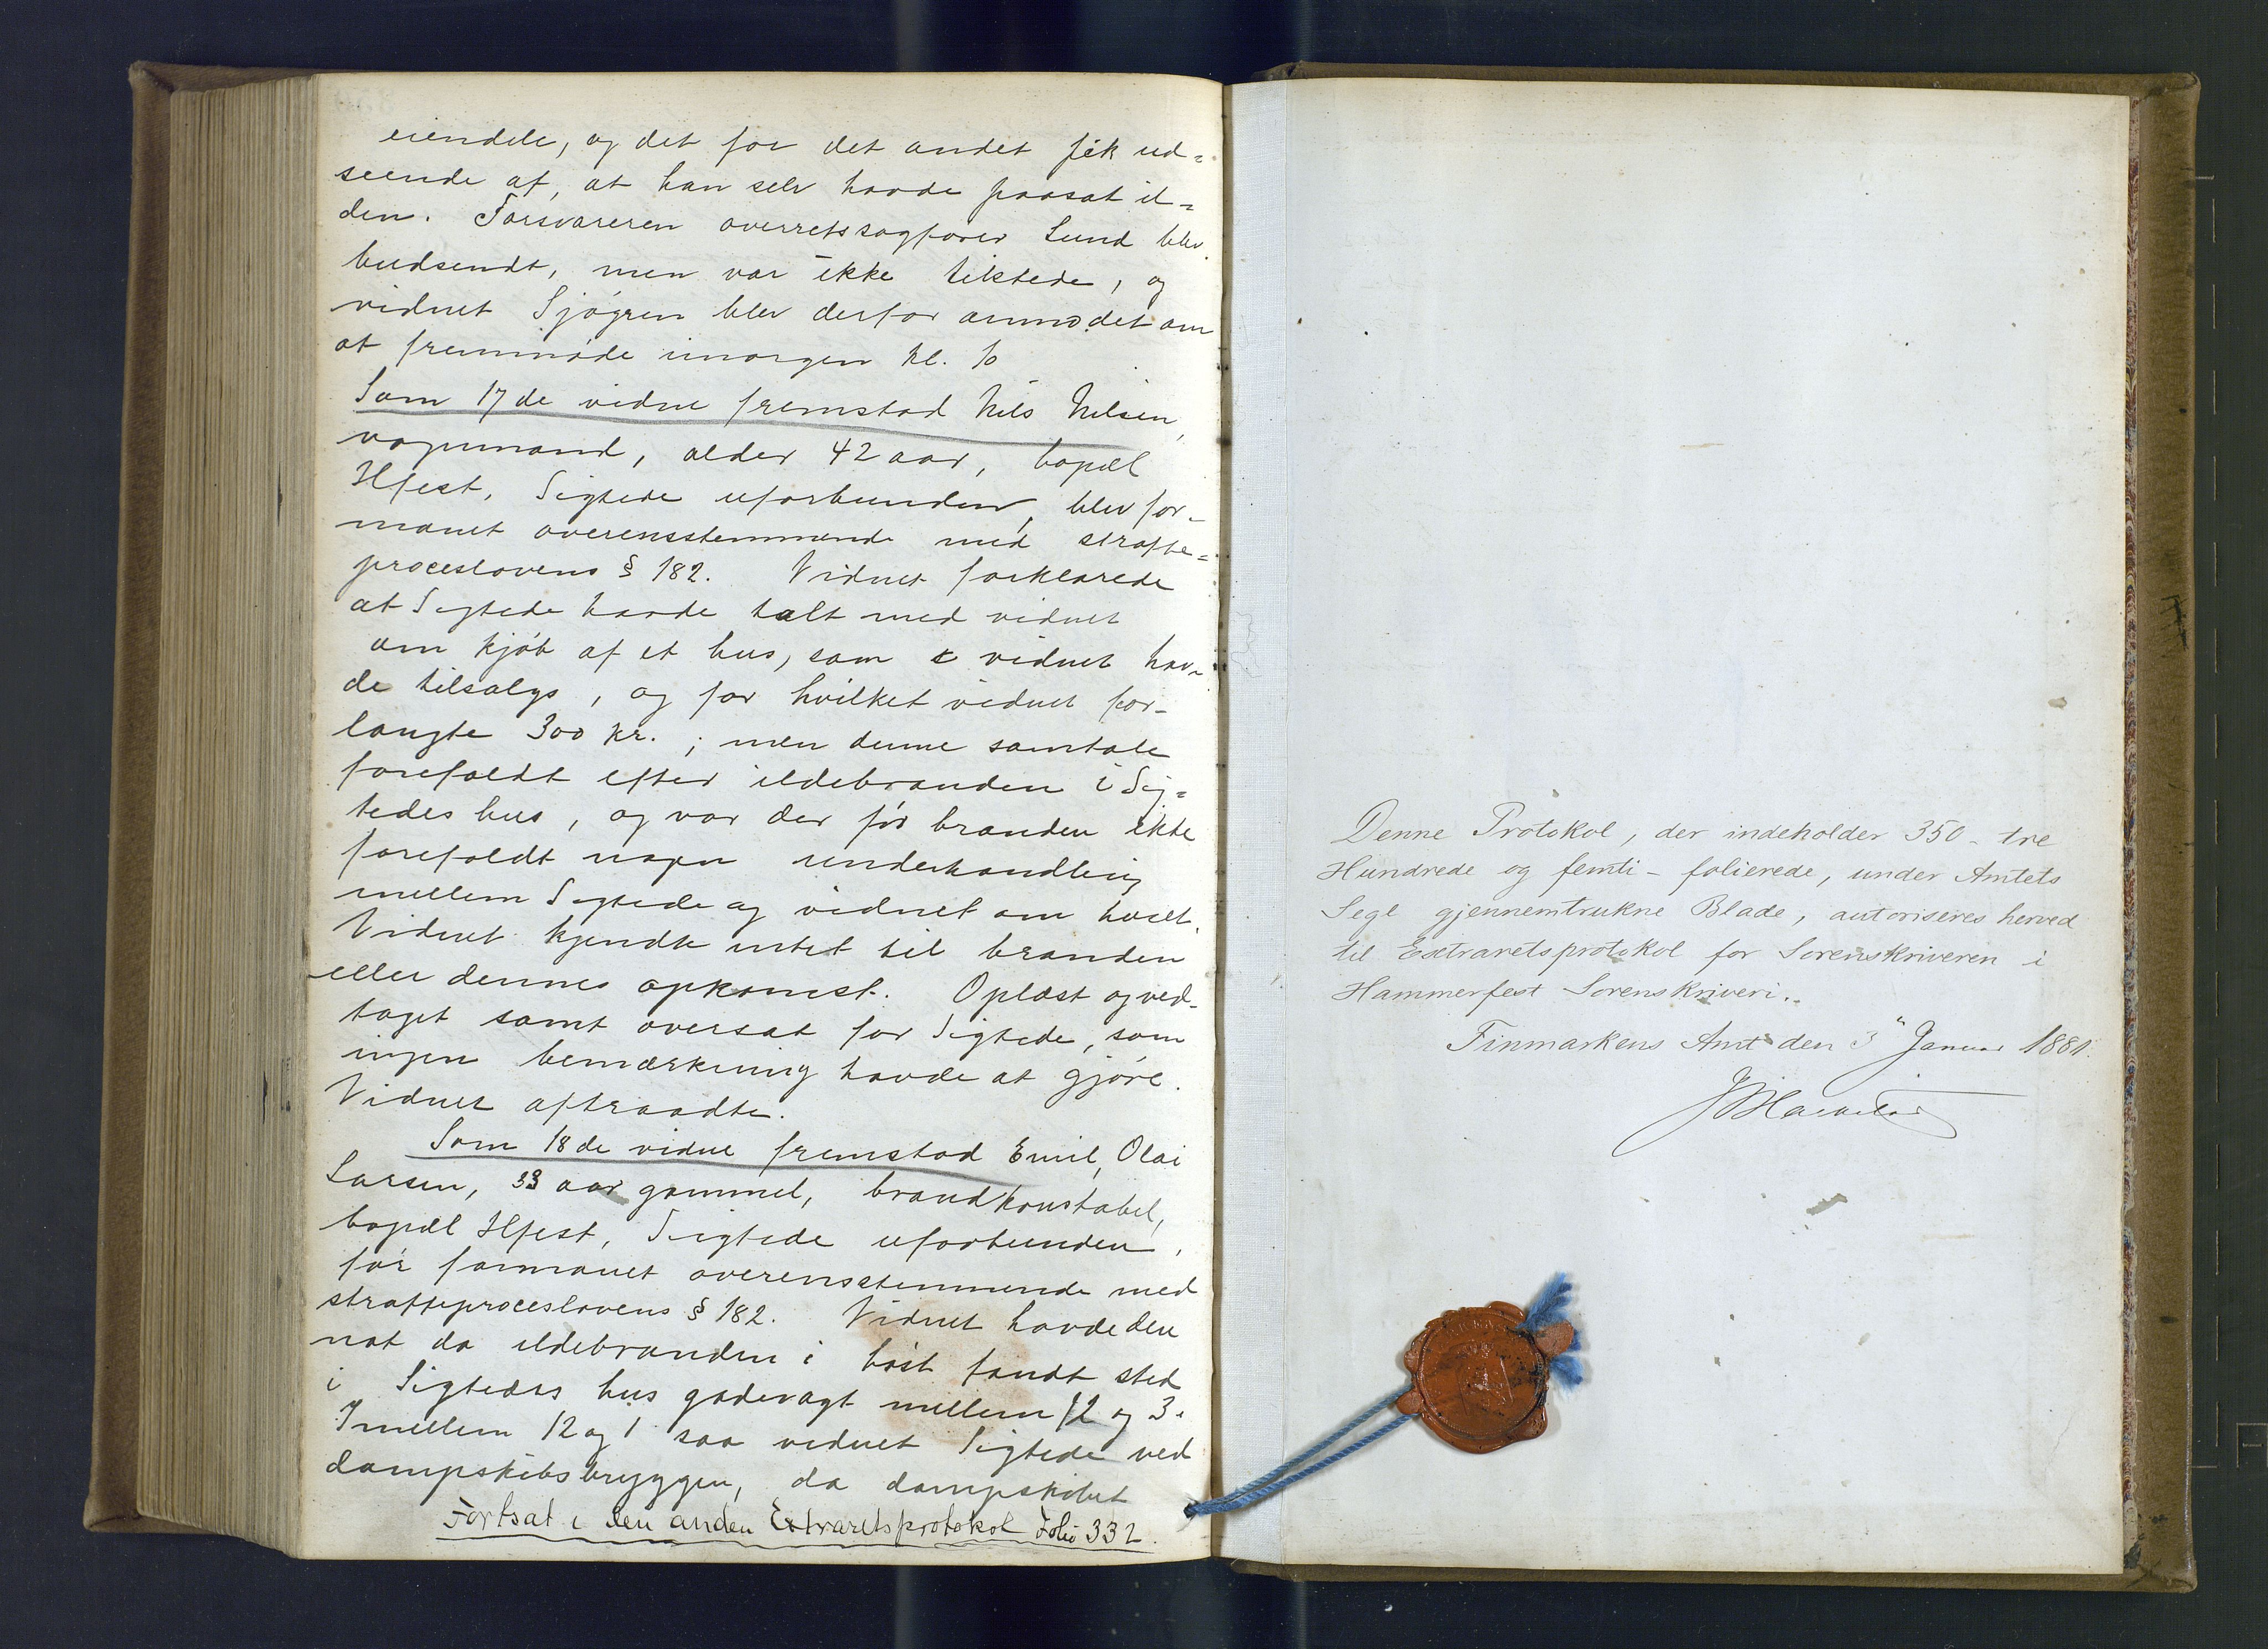 eiendele, og det for det andet fik ud=
seende af, at han selv havde paasat il=
den. Forsvareren overretssagfører Lund blev
budsendt, men var ikke tilstede, og
vidnet Sjøgren blev derfor anmodet om
at fremmøde imorgen kl. 10
Som 17de vidne fremstod Nils Nilsen,
vognmand, alder 42 aar, bopæl
Hfest, Sigtede uforbunden, blev for-
manet overensstemmende med straffe=
proceslovens § 182. Vidnet forklarede
at Sigtede havde talt med vidnet
om kjøb af et hus, som vidnet hav-
de tilsalgs, og for hvilket vidnet for-
langte 300 kr.; men denne samtale
forefaldt efter ildebranden i Sig=
tedes hus, og var der før branden ikke
forefaldt nogen underhandling
mellem Sigtede og vidnet om huset.
Vidnet kjendte intet til branden
eller dennes opkomst. Oplæst og ved-
taget samt oversat for Sigtede, som
ingen bemærkning havde at gjøre.
Vidnet aftraadte.
Som 18de vidne fremstod Emil Olai
Larsen, 33 aar gammel, brandkonstabel,
bopæl Hfest, Sigtede uforbunden,
før formanet overensstemmende med
straffeproceslovens § 182. Vidnet havde den
nat da ildebranden i høst fandt sted
i Sigtedes hus gadevagt mellem 12 og 3.
Imellem 12 og 1 saa vidnet Sigtede ved
dampskibsbryggen, da dampskibet
Fortsat i den anden Extraretsprotokol folio 332.
Denne Protokol, der indeholder 350 - tre
Hundrede og femti - folierede, under Amtets
Segl gjennemtrukne Blade, autoriseres herved
til Extraretsprotokol for Sorenskriveren i
Hammerfest Sorenskriveri.
Finmarkens Amt den 3" Januar 1881.